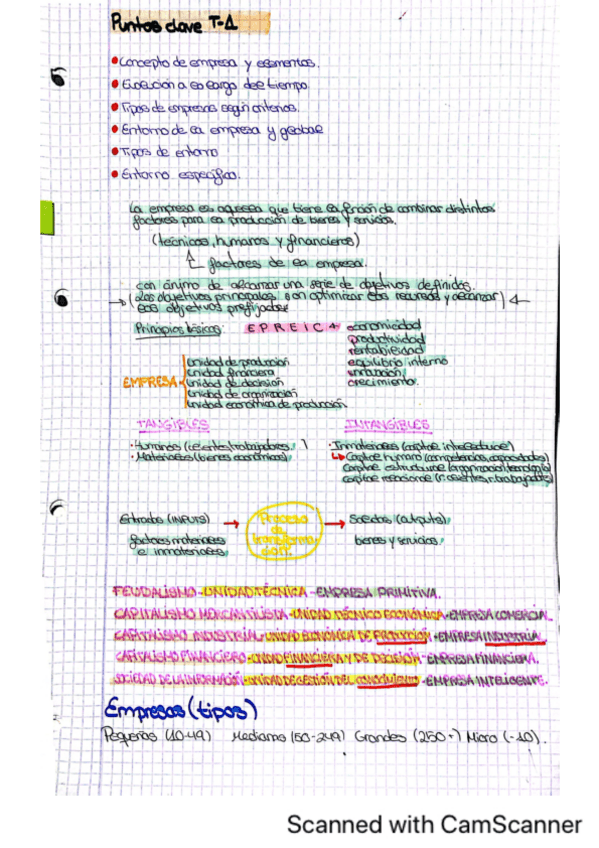 Puntos clave T-1
• Concepto de empresa y elementos.
• Evolución a lo largo del tiempo.
• Tipos de empresas según criterios.
• Entorno de la empresa y global
• Tipos de entorno
• Entorno específico.
La empresa es aquella que tiene la función de combinar distintos
factores para la producción de bienes y servicios.
(técnicos, humanos y financieros)
factores de la empresa.
con ánimo de alcanzar una serie de objetivos definidos.
(Los objetivos principales son optimizar los recursos y alcanzar)
los objetivos prefijados
Principios básicos: E P R E I C → economicidad
productividad
rentabilidad
equilibrio interno
innovación
crecimiento.
EMPRESA
Unidad de producción
Unidad financiera
Unidad de decisión
Unidad de organización
Unidad económica de producción.
TANGIBLES
· Humanos (clientes, trabajadores, )
· Materiales (bienes económicos).
INTANGIBLES
· Inmateriales (capital intelectual)
↳ Capital humano (competencias, capacidades)
Capital estructural (organización, tecnología)
Capital relacional (r. clientes, r. trabajadores)
Entradas (INPUTS) →
factores materiales
e inmateriales.
Proceso
de
transforma
ción.
→ Salidas (outputs)
bienes y servicios.
FEUDALISMO - UNIDAD TÉCNICA - EMPRESA PRIMITIVA.
CAPITALISMO MERCANTILISTA - UNIDAD TÉCNICO ECONÓMICA - EMPRESA COMERCIAL.
CAPITALISMO INDUSTRIAL - UNIDAD ECONÓMICA DE PRODUCCIÓN - EMPRESA INDUSTRIAL.
CAPITALISMO FINANCIERO - UNIDAD FINANCIERA Y DE DECISIÓN - EMPRESA FINANCIERA.
SOCIEDAD DE LA INFORMACIÓN - UNIDAD DE GESTIÓN DEL CONOCIMIENTO - EMPRESA INTELIGENTE.
Empresas (tipos)
Pequeñas (10-49) Medianas (50-249) Grandes (250+) Micro (-10).
Scanned with CamScanner